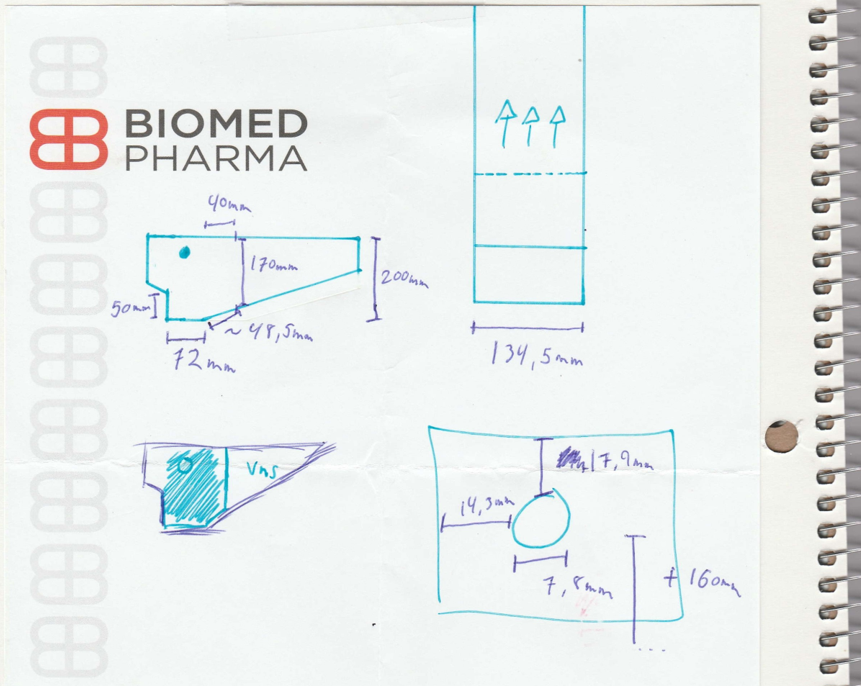 BIOMED
PHARMA
40mm
170mm
200mm
50mm
~48,5mm
72mm
134,5mm
17,9mm
14,3mm
7,8mm
+ 160mm
...